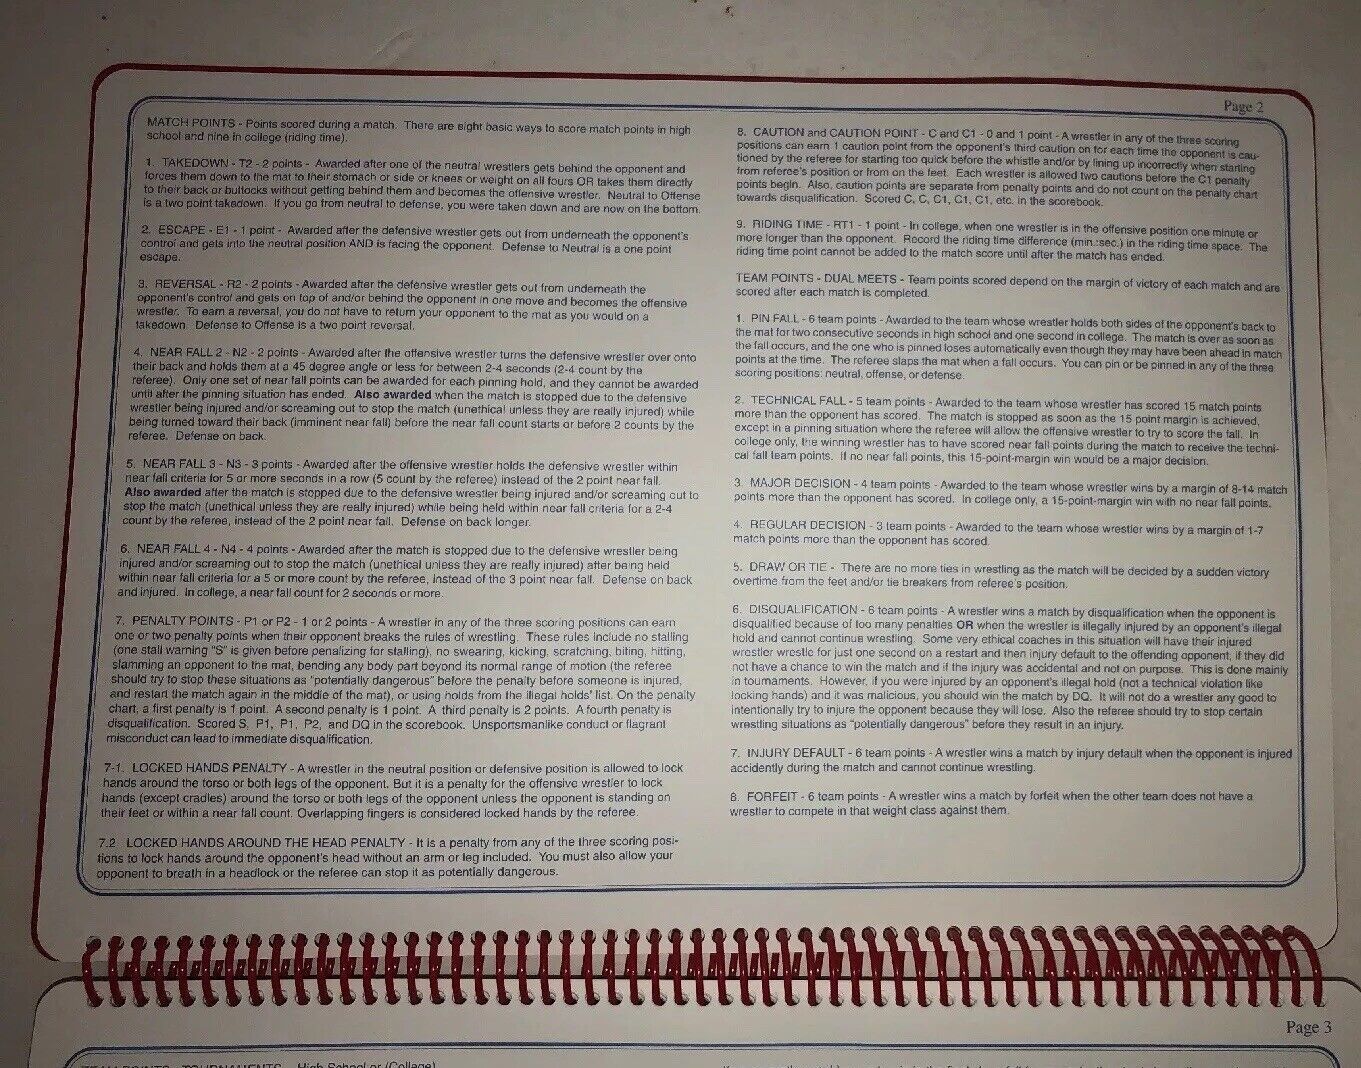 Page 2
MATCH POINTS - Points scored during a match. There are eight basic ways to score match points in high
school and nine in college (riding time).
1. TAKEDOWN - T2 - 2 points - Awarded after one of the neutral wrestlers gets behind the opponent and
forces them down to the mat to their stomach or side or knees or weight on all fours OR takes them directly
to their back or buttocks without getting behind them and becomes the offensive wrestler. Neutral to Offense
is a two point takedown. If you go from neutral to defense, you were taken down and are now on the bottom.
2. ESCAPE - E1 - 1 point - Awarded after the defensive wrestler gets out from underneath the opponent's
control and gets into the neutral position AND is facing the opponent. Defense to Neutral is a one point
escape.
3. REVERSAL - R2 - 2 points - Awarded after the defensive wrestler gets out from underneath the
opponent's control and gets on top of and/or behind the opponent in one move and becomes the offensive
wrestler. To earn a reversal, you do not have to return your opponent to the mat as you would on a
takedown. Defense to Offense is a two point reversal.
4. NEAR FALL 2 - N2 - 2 points - Awarded after the offensive wrestler turns the defensive wrestler over onto
their back and holds them at a 45 degree angle or less for between 2-4 seconds (2-4 count by the
referee). Only one set of near fall points can be awarded for each pinning hold, and they cannot be awarded
until after the pinning situation has ended. Also awarded when the match is stopped due to the defensive
wrestler being injured and/or screaming out to stop the match (unethical unless they are really injured) while
being turned toward their back (imminent near fall) before the near fall count starts or before 2 counts by the
referee. Defense on back.
5. NEAR FALL 3 - N3 - 3 points - Awarded after the offensive wrestler holds the defensive wrestler within
near fall criteria for 5 or more seconds in a row (5 count by the referee) instead of the 2 point near fall.
Also awarded after the match is stopped due to the defensive wrestler being injured and/or screaming out to
stop the match (unethical unless they are really injured) while being held within near fall criteria for a 2-4
count by the referee, instead of the 2 point near fall. Defense on back longer.
6. NEAR FALL 4 - N4 - 4 points - Awarded after the match is stopped due to the defensive wrestler being
injured and/or screaming out to stop the match (unethical unless they are really injured) after being held
within near fall criteria for a 5 or more count by the referee, instead of the 3 point near fall. Defense on back
and injured. In college, a near fall count for 2 seconds or more.
7. PENALTY POINTS - P1 or P2 - 1 or 2 points - A wrestler in any of the three scoring positions can earn
one or two penalty points when their opponent breaks the rules of wrestling. These rules include no stalling
(one stall warning "S" is given before penalizing for stalling), no swearing, kicking, scratching, biting, hitting,
slamming an opponent to the mat, bending any body part beyond its normal range of motion (the referee
should try to stop these situations as "potentially dangerous" before the penalty before someone is injured,
and restart the match again in the middle of the mat), or using holds from the illegal holds' list. On the penalty
chart, a first penalty is 1 point. A second penalty is 1 point. A third penalty is 2 points. A fourth penalty is
disqualification. Scored S, P1, P1, P2, and DQ in the scorebook. Unsportsmanlike conduct or flagrant
misconduct can lead to immediate disqualification.
7-1. LOCKED HANDS PENALTY - A wrestler in the neutral position or defensive position is allowed to lock
hands around the torso or both legs of the opponent. But it is a penalty for the offensive wrestler to lock
hands (except cradles) around the torso or both legs of the opponent unless the opponent is standing on
their feet or within a near fall count. Overlapping fingers is considered locked hands by the referee.
7.2 LOCKED HANDS AROUND THE HEAD PENALTY - It is a penalty from any of the three scoring posi-
tions to lock hands around the opponent's head without an arm or leg included. You must also allow your
opponent to breath in a headlock or the referee can stop it as potentially dangerous.
8. CAUTION and CAUTION POINT - C and C1 - 0 and 1 point - A wrestler in any of the three scoring
positions can earn 1 caution point from the opponent's third caution on for each time the opponent is cau-
tioned by the referee for starting too quick before the whistle and/or by lining up incorrectly when starting
from referee's position or from on the feet. Each wrestler is allowed two cautions before the C1 penalty
points begin. Also, caution points are separate from penalty points and do not count on the penalty chart
towards disqualification. Scored C, C, C1, C1, C1, etc. in the scorebook.
9. RIDING TIME - RT1 - 1 point - In college, when one wrestler is in the offensive position one minute or
more longer than the opponent. Record the riding time difference (min.:sec.) in the riding time space. The
riding time point cannot be added to the match score until after the match has ended.
TEAM POINTS - DUAL MEETS - Team points scored depend on the margin of victory of each match and are
scored after each match is completed.
1. PIN FALL - 6 team points - Awarded to the team whose wrestler holds both sides of the opponent's back to
the mat for two consecutive seconds in high school and one second in college. The match is over as soon as
the fall occurs, and the one who is pinned loses automatically even though they may have been ahead in match
points at the time. The referee slaps the mat when a fall occurs. You can pin or be pinned in any of the three
scoring positions: neutral, offense, or defense.
2. TECHNICAL FALL - 5 team points - Awarded to the team whose wrestler has scored 15 match points
more than the opponent has scored. The match is stopped as soon as the 15 point margin is achieved,
except in a pinning situation where the referee will allow the offensive wrestler to try to score the fall. In
college only, the winning wrestler has to have scored near fall points during the match to receive the techni-
cal fall team points. If no near fall points, this 15-point-margin win would be a major decision.
3. MAJOR DECISION - 4 team points - Awarded to the team whose wrestler wins by a margin of 8-14 match
points more than the opponent has scored. In college only, a 15-point-margin win with no near fall points.
4. REGULAR DECISION - 3 team points - Awarded to the team whose wrestler wins by a margin of 1-7
match points more than the opponent has scored.
5. DRAW OR TIE - There are no more ties in wrestling as the match will be decided by a sudden victory
overtime from the feet and/or tie breakers from referee's position.
6. DISQUALIFICATION - 6 team points - A wrestler wins a match by disqualification when the opponent is
disqualified because of too many penalties OR when the wrestler is illegally injured by an opponent's illegal
hold and cannot continue wrestling. Some very ethical coaches in this situation will have their injured
wrestler wrestle for just one second on a restart and then injury default to the offending opponent, if they did
not have a chance to win the match and if the injury was accidental and not on purpose. This is done mainly
in tournaments. However, if you were injured by an opponent's illegal hold (not a technical violation like
locking hands) and it was malicious, you should win the match by DQ. It will not do a wrestler any good to
intentionally try to injure the opponent because they will lose. Also the referee should try to stop certain
wrestling situations as "potentially dangerous" before they result in an injury.
7. INJURY DEFAULT - 6 team points - A wrestler wins a match by injury default when the opponent is injured
accidently during the match and cannot continue wrestling.
8. FORFEIT - 6 team points - A wrestler wins a match by forfeit when the other team does not have a
wrestler to compete in that weight class against them.
Page 3
TEAM POINTS - TOURNAMENTS - High School or (College)